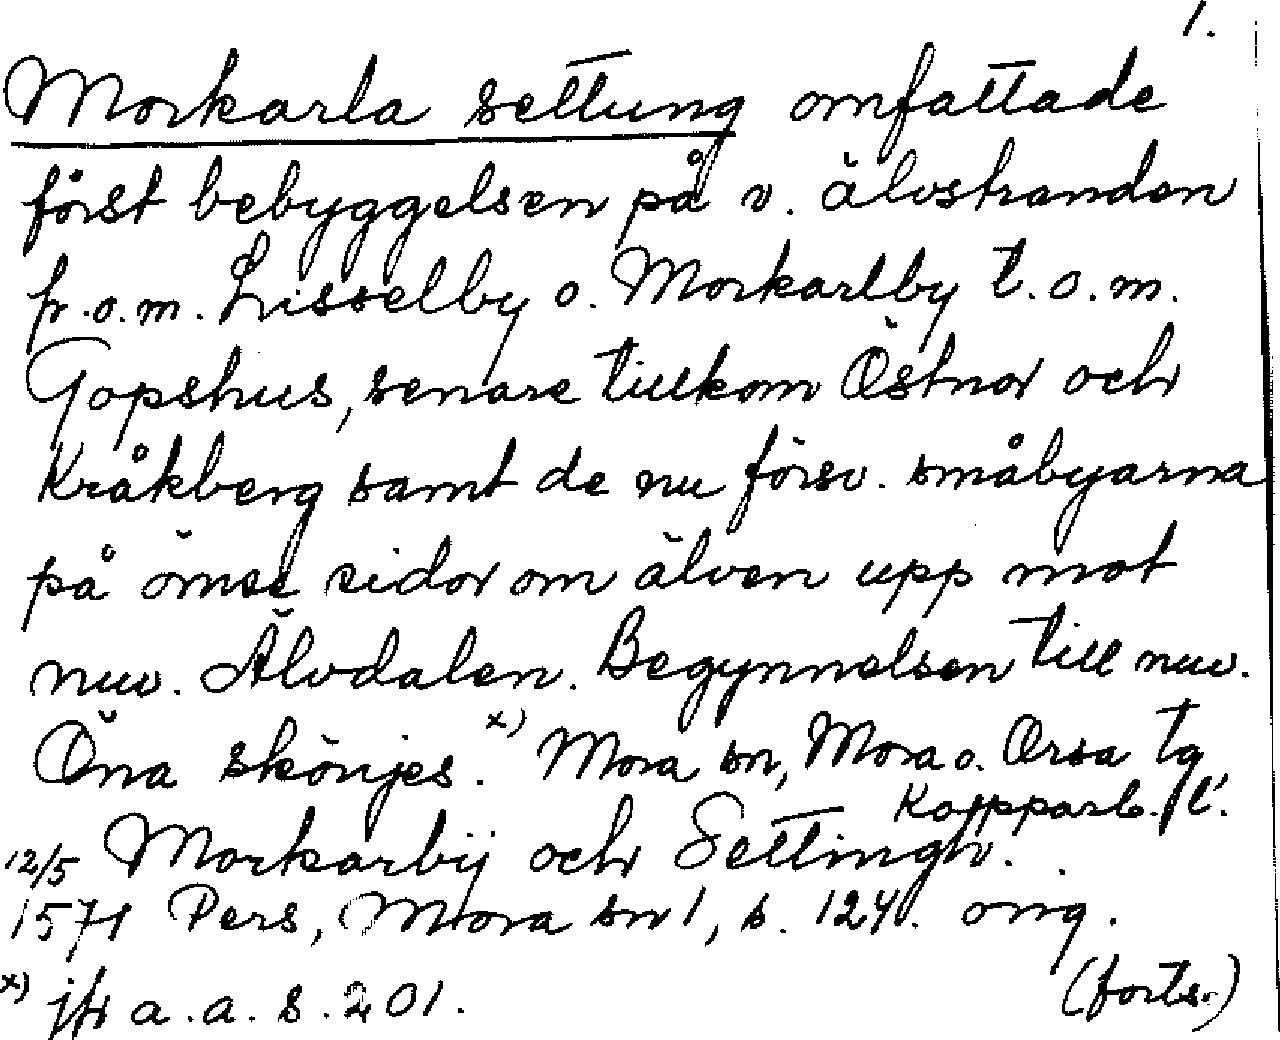 1.
Morkarla settung omfattade
först bebyggelsen på v. älvstranden
fr.o.m. Lisselby o. Morkarlby t.o.m.
Gopshus, senare tillkom Östnor och
Kråkberg samt de nu försv. småbyarna
på ömse sidor om älven upp mot
nuv. Älvdalen. Begynnelsen till nuv.
Öna skönjes. x) Mora sn, Mora o. Orsa tg
Kopparb. l.
12/5 Morkarbij och Settingh.
1571 Pers, Mora sn 1, s. 124. orig.
x) jfr a.a. s. 201.
(forts.)